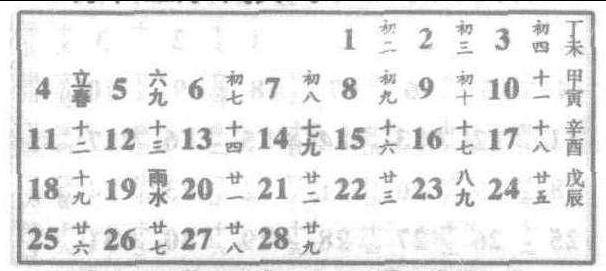 1 初二 2 初三 3 初四 丁未
4 立春 5 六九 6 初七 7 初八 8 初九 9 初十 10 十一 甲寅
11 十二 12 十三 13 十四 14 七九 15 十六 16 十七 17 十八 辛酉
18 十九 19 雨水 20 廿一 21 廿二 22 廿三 23 八九 24 廿五 戊辰
25 廿六 26 廿七 27 廿八 28 廿九